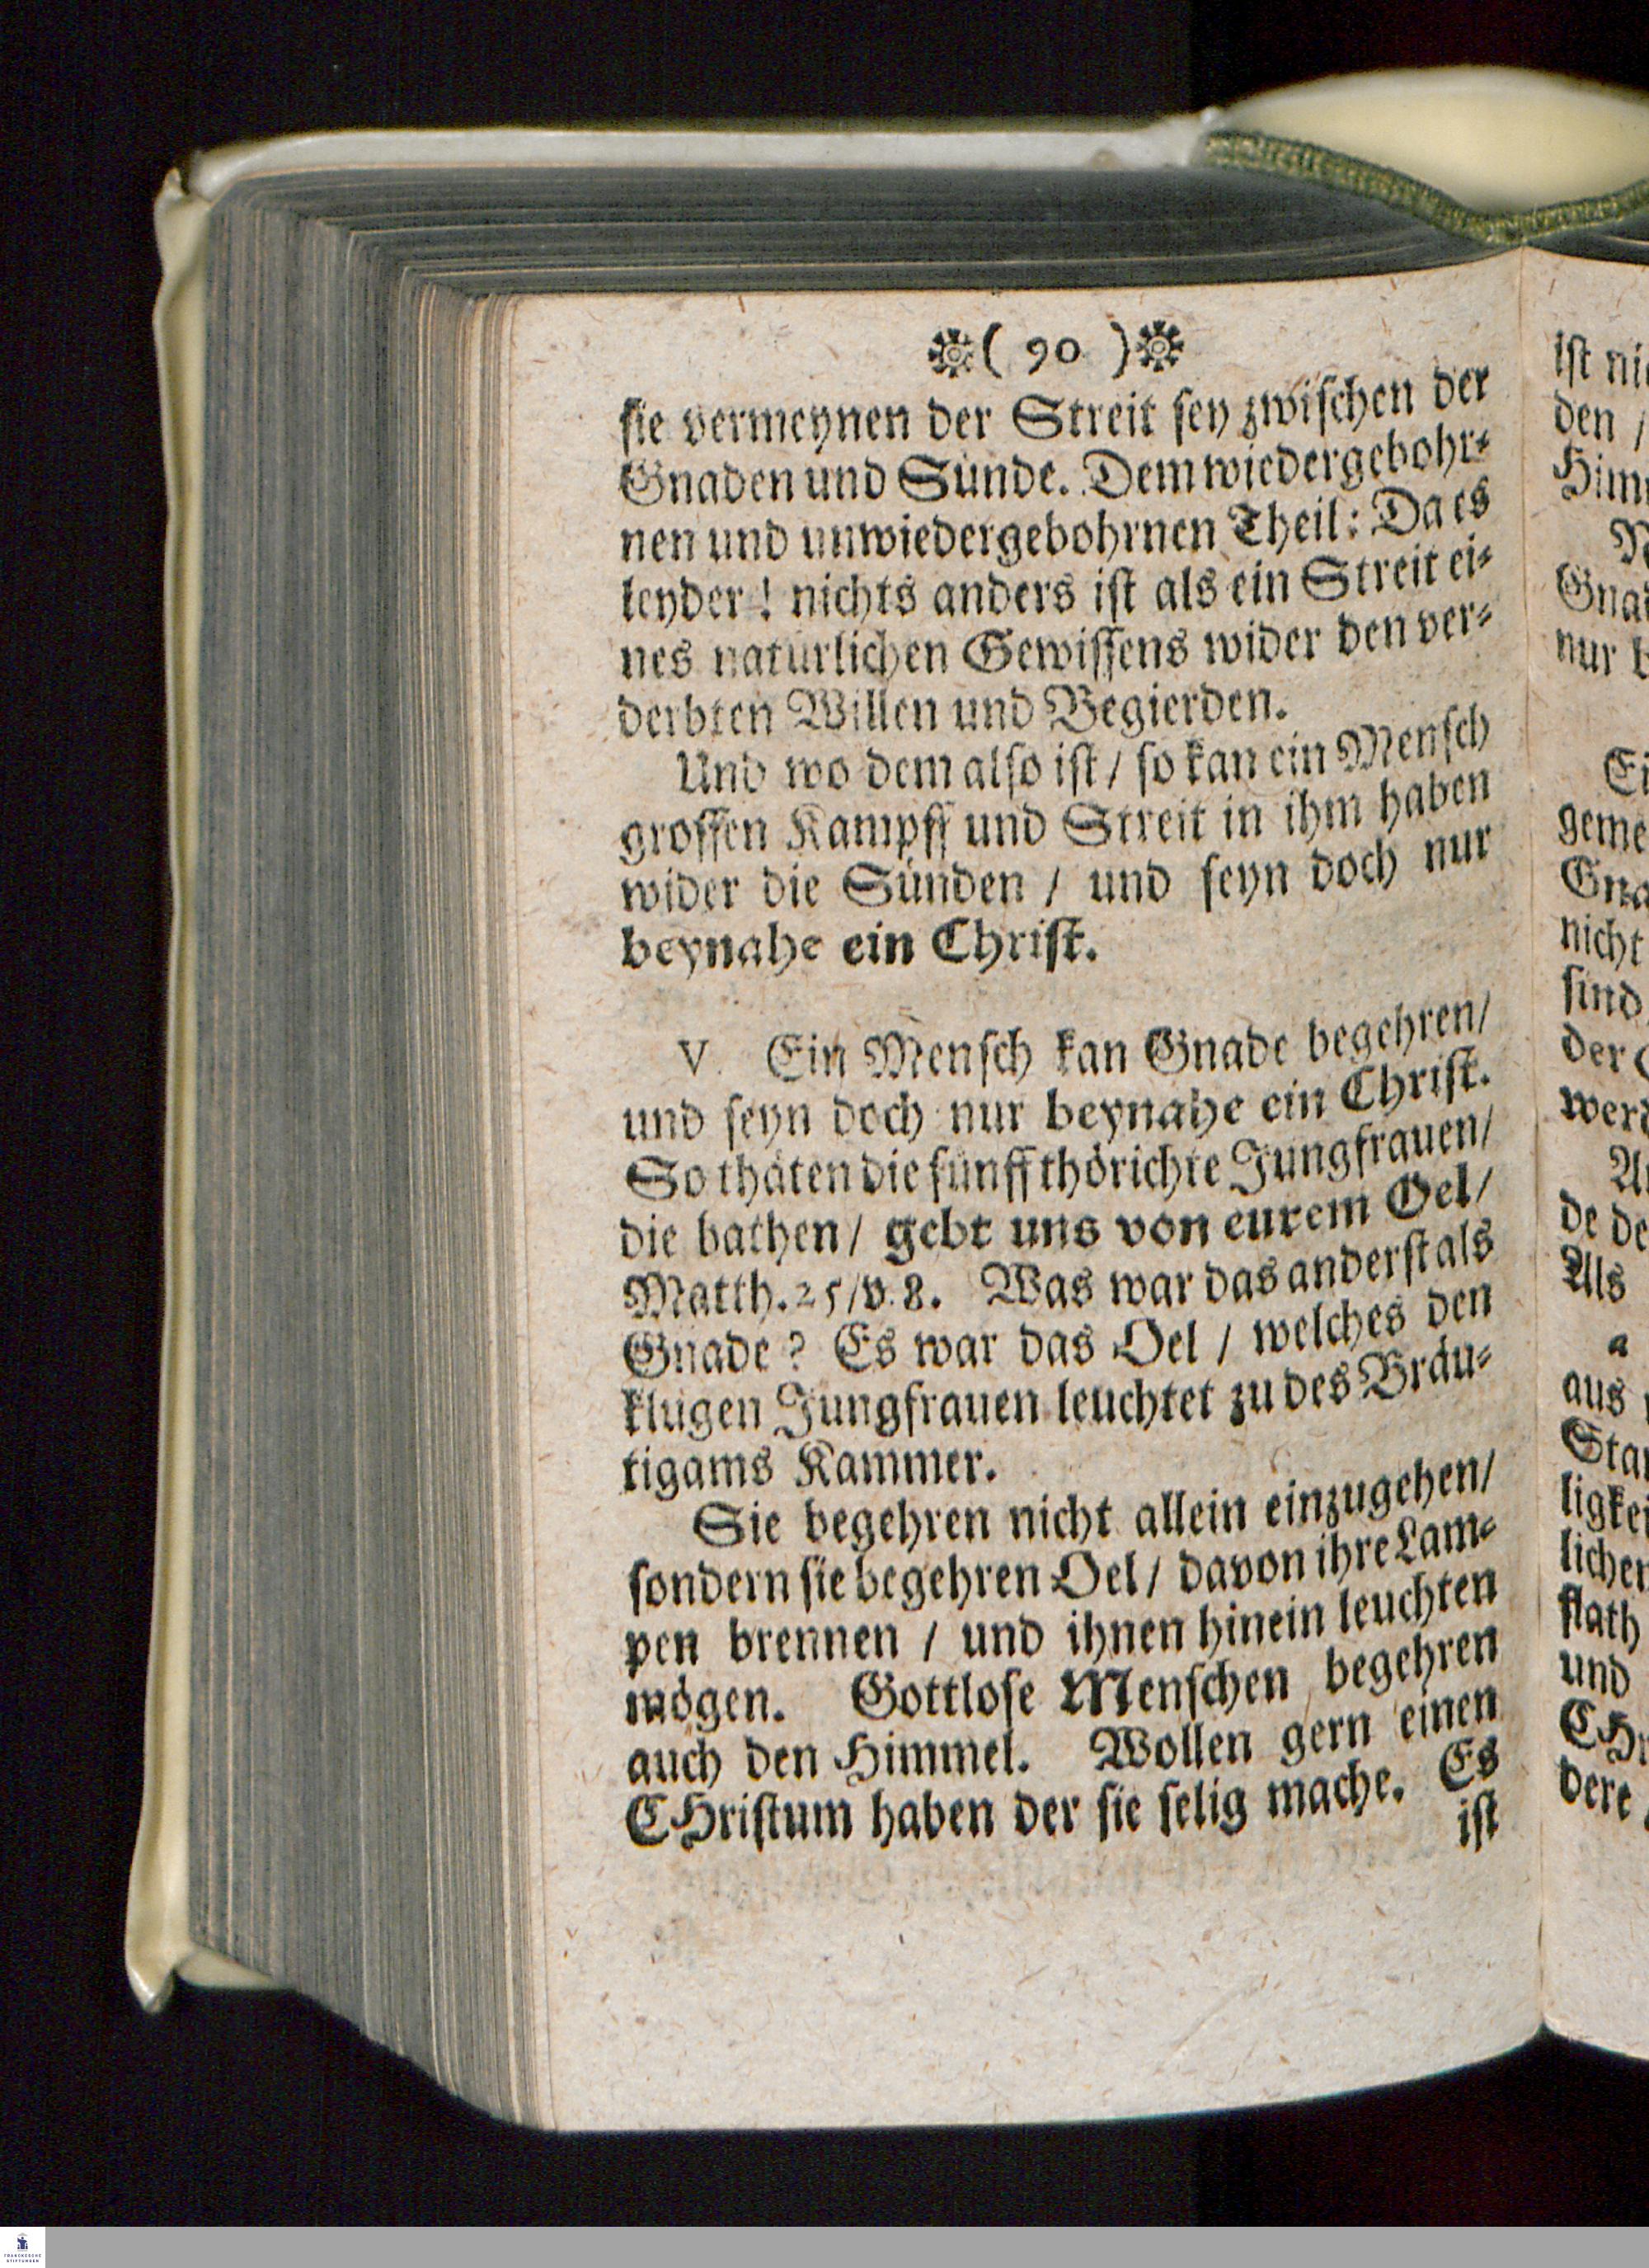 ( 90 )
sie vermeynen der Streit sey zwischen der
Gnaden und Sünde. Dem wiedergebohr-
nen und unwiedergebohrnen Theil: Da es
leyder! nichts anders ist als ein Streit ei-
nes natürlichen Gewissens wider den ver-
derbten Willen und Begierden.
Und wo dem also ist / so kan ein Mensch
grossen Kampff und Streit in ihm haben
wider die Sünden / und seyn doch nur
beynahe ein Christ.
V. Ein Mensch kan Gnade begehren/
und seyn doch nur beynahe ein Christ.
So thäten die fünff thörichte Jungfrauen/
die bathen/ gebt uns von eurem Oel/
Matth. 25/v. 8. Was war das anderst als
Gnade? Es war das Oel / welches den
klugen Jungfrauen leuchtet zu des Bräu-
tigams Kammer.
Sie begehren nicht allein einzugehen/
sondern sie begehren Oel / davon ihre Lam-
pen brennen / und ihnen hinein leuchten
mögen. Gottlose Menschen begehren
auch den Himmel. Wollen gern einen
CHristum haben der sie selig mache. Es
ist
ist
den /
nur
nicht
sind
der
de
Als
a
aus
und
dere
FRANCKESCHE
STIFTUNGEN